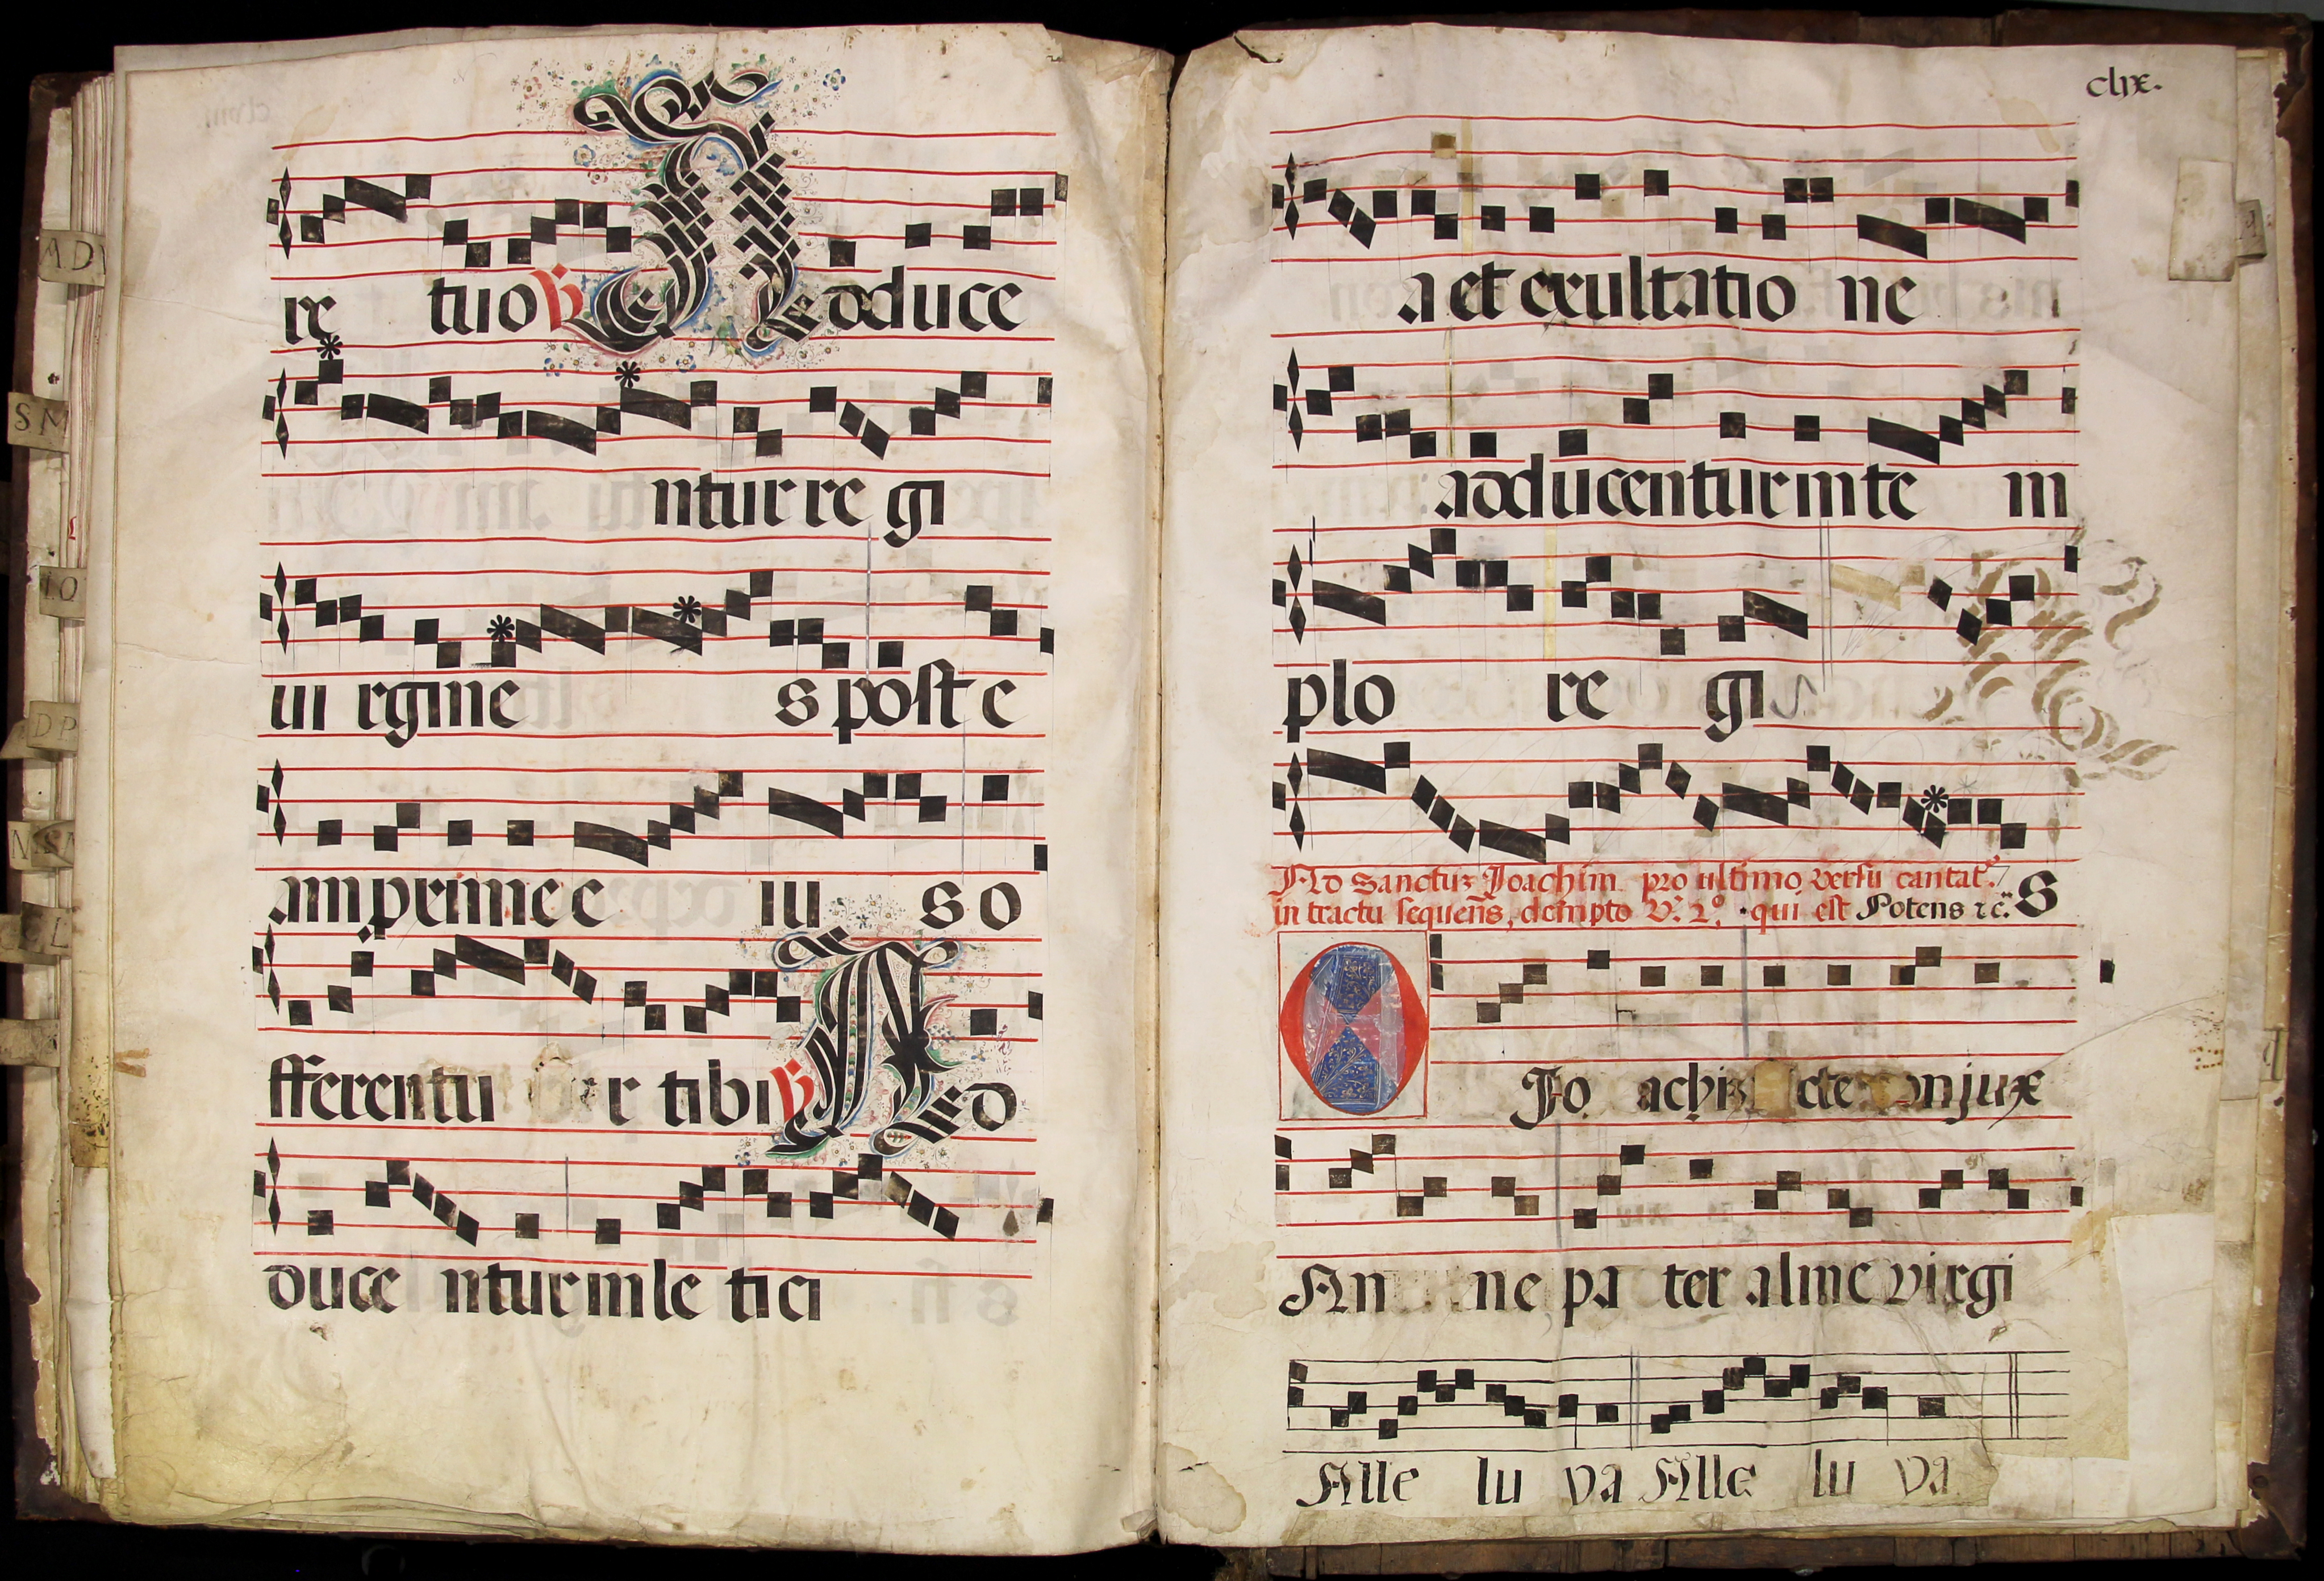 re tuo ℣ Adduce
ntur re gi
ui rgine s post e
am prime e iu s o
fferentu r tibi ℣ Ad
duce ntur in le tici
clix.
a et exultatio ne
adducentur in te m
plo re gis
Ad Sanctuz Joachim pro ultimo versu cantat.
in tractu sequens, dempto V.º 2.º qui est Potens &c. S
O Jo achi cte onjux
An ne pa ter alme virgi
Alle lu ya Alle lu ya
AD
SM
IO
DP